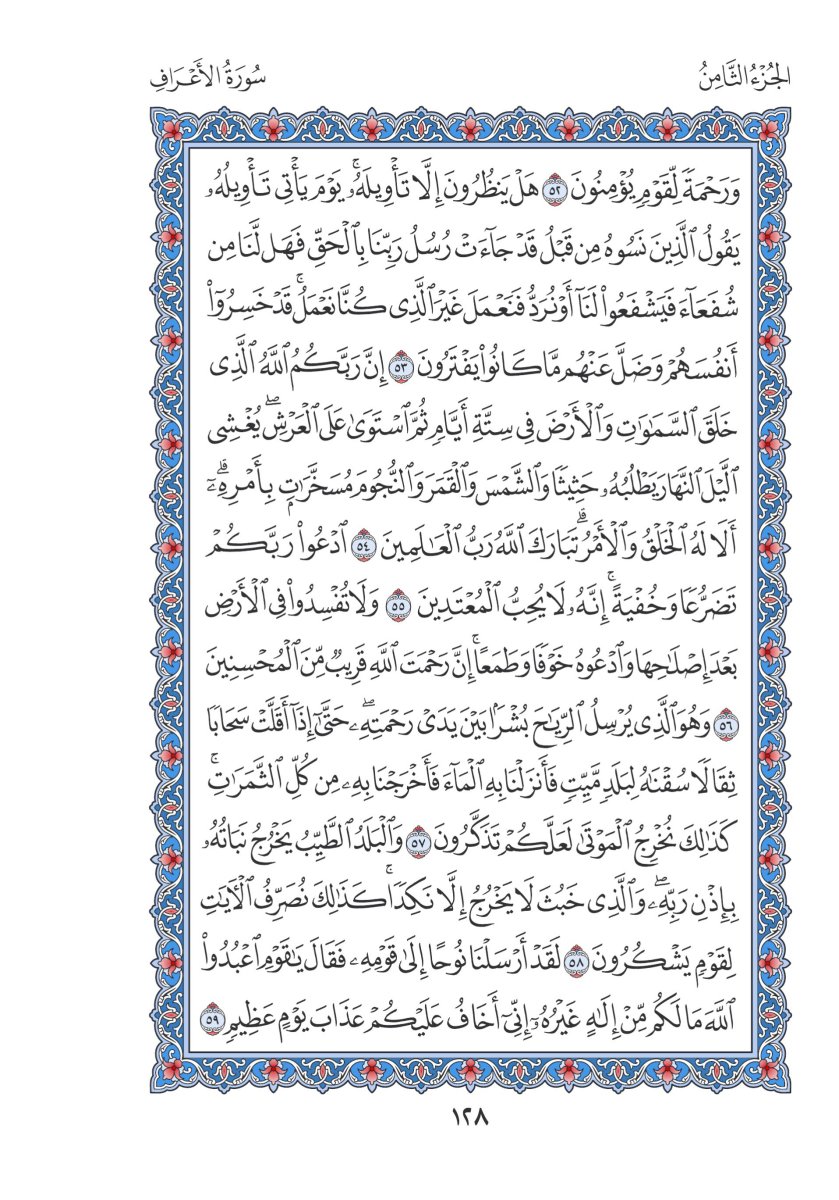 الجُزْءُ الثَّامِنُ
سُورَةُ الأَعْرَافِ
وَرَحْمَةٗ لِّقَوۡمٖ يُؤۡمِنُونَ ٥٢ هَلۡ يَنظُرُونَ إِلَّا تَأۡوِيلَهُۥۚ يَوۡمَ يَأۡتِي تَأۡوِيلُهُۥ
يَقُولُ ٱلَّذِينَ نَسُوهُ مِن قَبۡلُ قَدۡ جَآءَتۡ رُسُلُ رَبِّنَا بِٱلۡحَقِّ فَهَل لَّنَا مِن
شُفَعَآءَ فَيَشۡفَعُواْ لَنَآ أَوۡ نُرَدُّ فَنَعۡمَلَ غَيۡرَ ٱلَّذِي كُنَّا نَعۡمَلُۚ قَدۡ خَسِرُوٓاْ
أَنفُسَهُمۡ وَضَلَّ عَنۡهُم مَّا كَانُواْ يَفۡتَرُونَ ٥٣ إِنَّ رَبَّكُمُ ٱللَّهُ ٱلَّذِي
خَلَقَ ٱلسَّمَٰوَٰتِ وَٱلۡأَرۡضَ فِي سِتَّةِ أَيَّامٖ ثُمَّ ٱسۡتَوَىٰ عَلَى ٱلۡعَرۡشِۖ يُغۡشِي
ٱلَّيۡلَ ٱلنَّهَارَ يَطۡلُبُهُۥ حَثِيثٗا وَٱلشَّمۡسَ وَٱلۡقَمَرَ وَٱلنُّجُومَ مُسَخَّرَٰتِۭ بِأَمۡرِهِۦٓۗ
أَلَا لَهُ ٱلۡخَلۡقُ وَٱلۡأَمۡرُۗ تَبَارَكَ ٱللَّهُ رَبُّ ٱلۡعَٰلَمِينَ ٥٤ ٱدۡعُواْ رَبَّكُمۡ
تَضَرُّعٗا وَخُفۡيَةًۚ إِنَّهُۥ لَا يُحِبُّ ٱلۡمُعۡتَدِينَ ٥٥ وَلَا تُفۡسِدُواْ فِي ٱلۡأَرۡضِ
بَعۡدَ إِصۡلَٰحِهَا وَٱدۡعُوهُ خَوۡفٗا وَطَمَعًاۚ إِنَّ رَحۡمَتَ ٱللَّهِ قَرِيبٞ مِّنَ ٱلۡمُحۡسِنِينَ
٥٦ وَهُوَ ٱلَّذِي يُرۡسِلُ ٱلرِّيَٰحَ بُشۡرَۢا بَيۡنَ يَدَيۡ رَحۡمَتِهِۦۖ حَتَّىٰٓ إِذَآ أَقَلَّتۡ سَحَابٗا
ثِقَالٗا سُقۡنَٰهُ لِبَلَدٖ مَّيِّتٖ فَأَنزَلۡنَا بِهِ ٱلۡمَآءَ فَأَخۡرَجۡنَا بِهِۦ مِن كُلِّ ٱلثَّمَرَٰتِۚ
كَذَٰلِكَ نُخۡرِجُ ٱلۡمَوۡتَىٰ لَعَلَّكُمۡ تَذَكَّرُونَ ٥٧ وَٱلۡبَلَدُ ٱلطَّيِّبُ يَخۡرُجُ نَبَاتُهُۥ
بِإِذۡنِ رَبِّهِۦۖ وَٱلَّذِي خَبُثَ لَا يَخۡرُجُ إِلَّا نَكِدٗاۚ كَذَٰلِكَ نُصَرِّفُ ٱلۡأٓيَٰتِ
لِقَوۡمٖ يَشۡكُرُونَ ٥٨ لَقَدۡ أَرۡسَلۡنَا نُوحًا إِلَىٰ قَوۡمِهِۦ فَقَالَ يَٰقَوۡمِ ٱعۡبُدُواْ
ٱللَّهَ مَا لَكُم مِّنۡ إِلَٰهٍ غَيۡرُهُۥٓ إِنِّيٓ أَخَافُ عَلَيۡكُمۡ عَذَابَ يَوۡمٍ عَظِيمٖ ٥٩
١٢٨